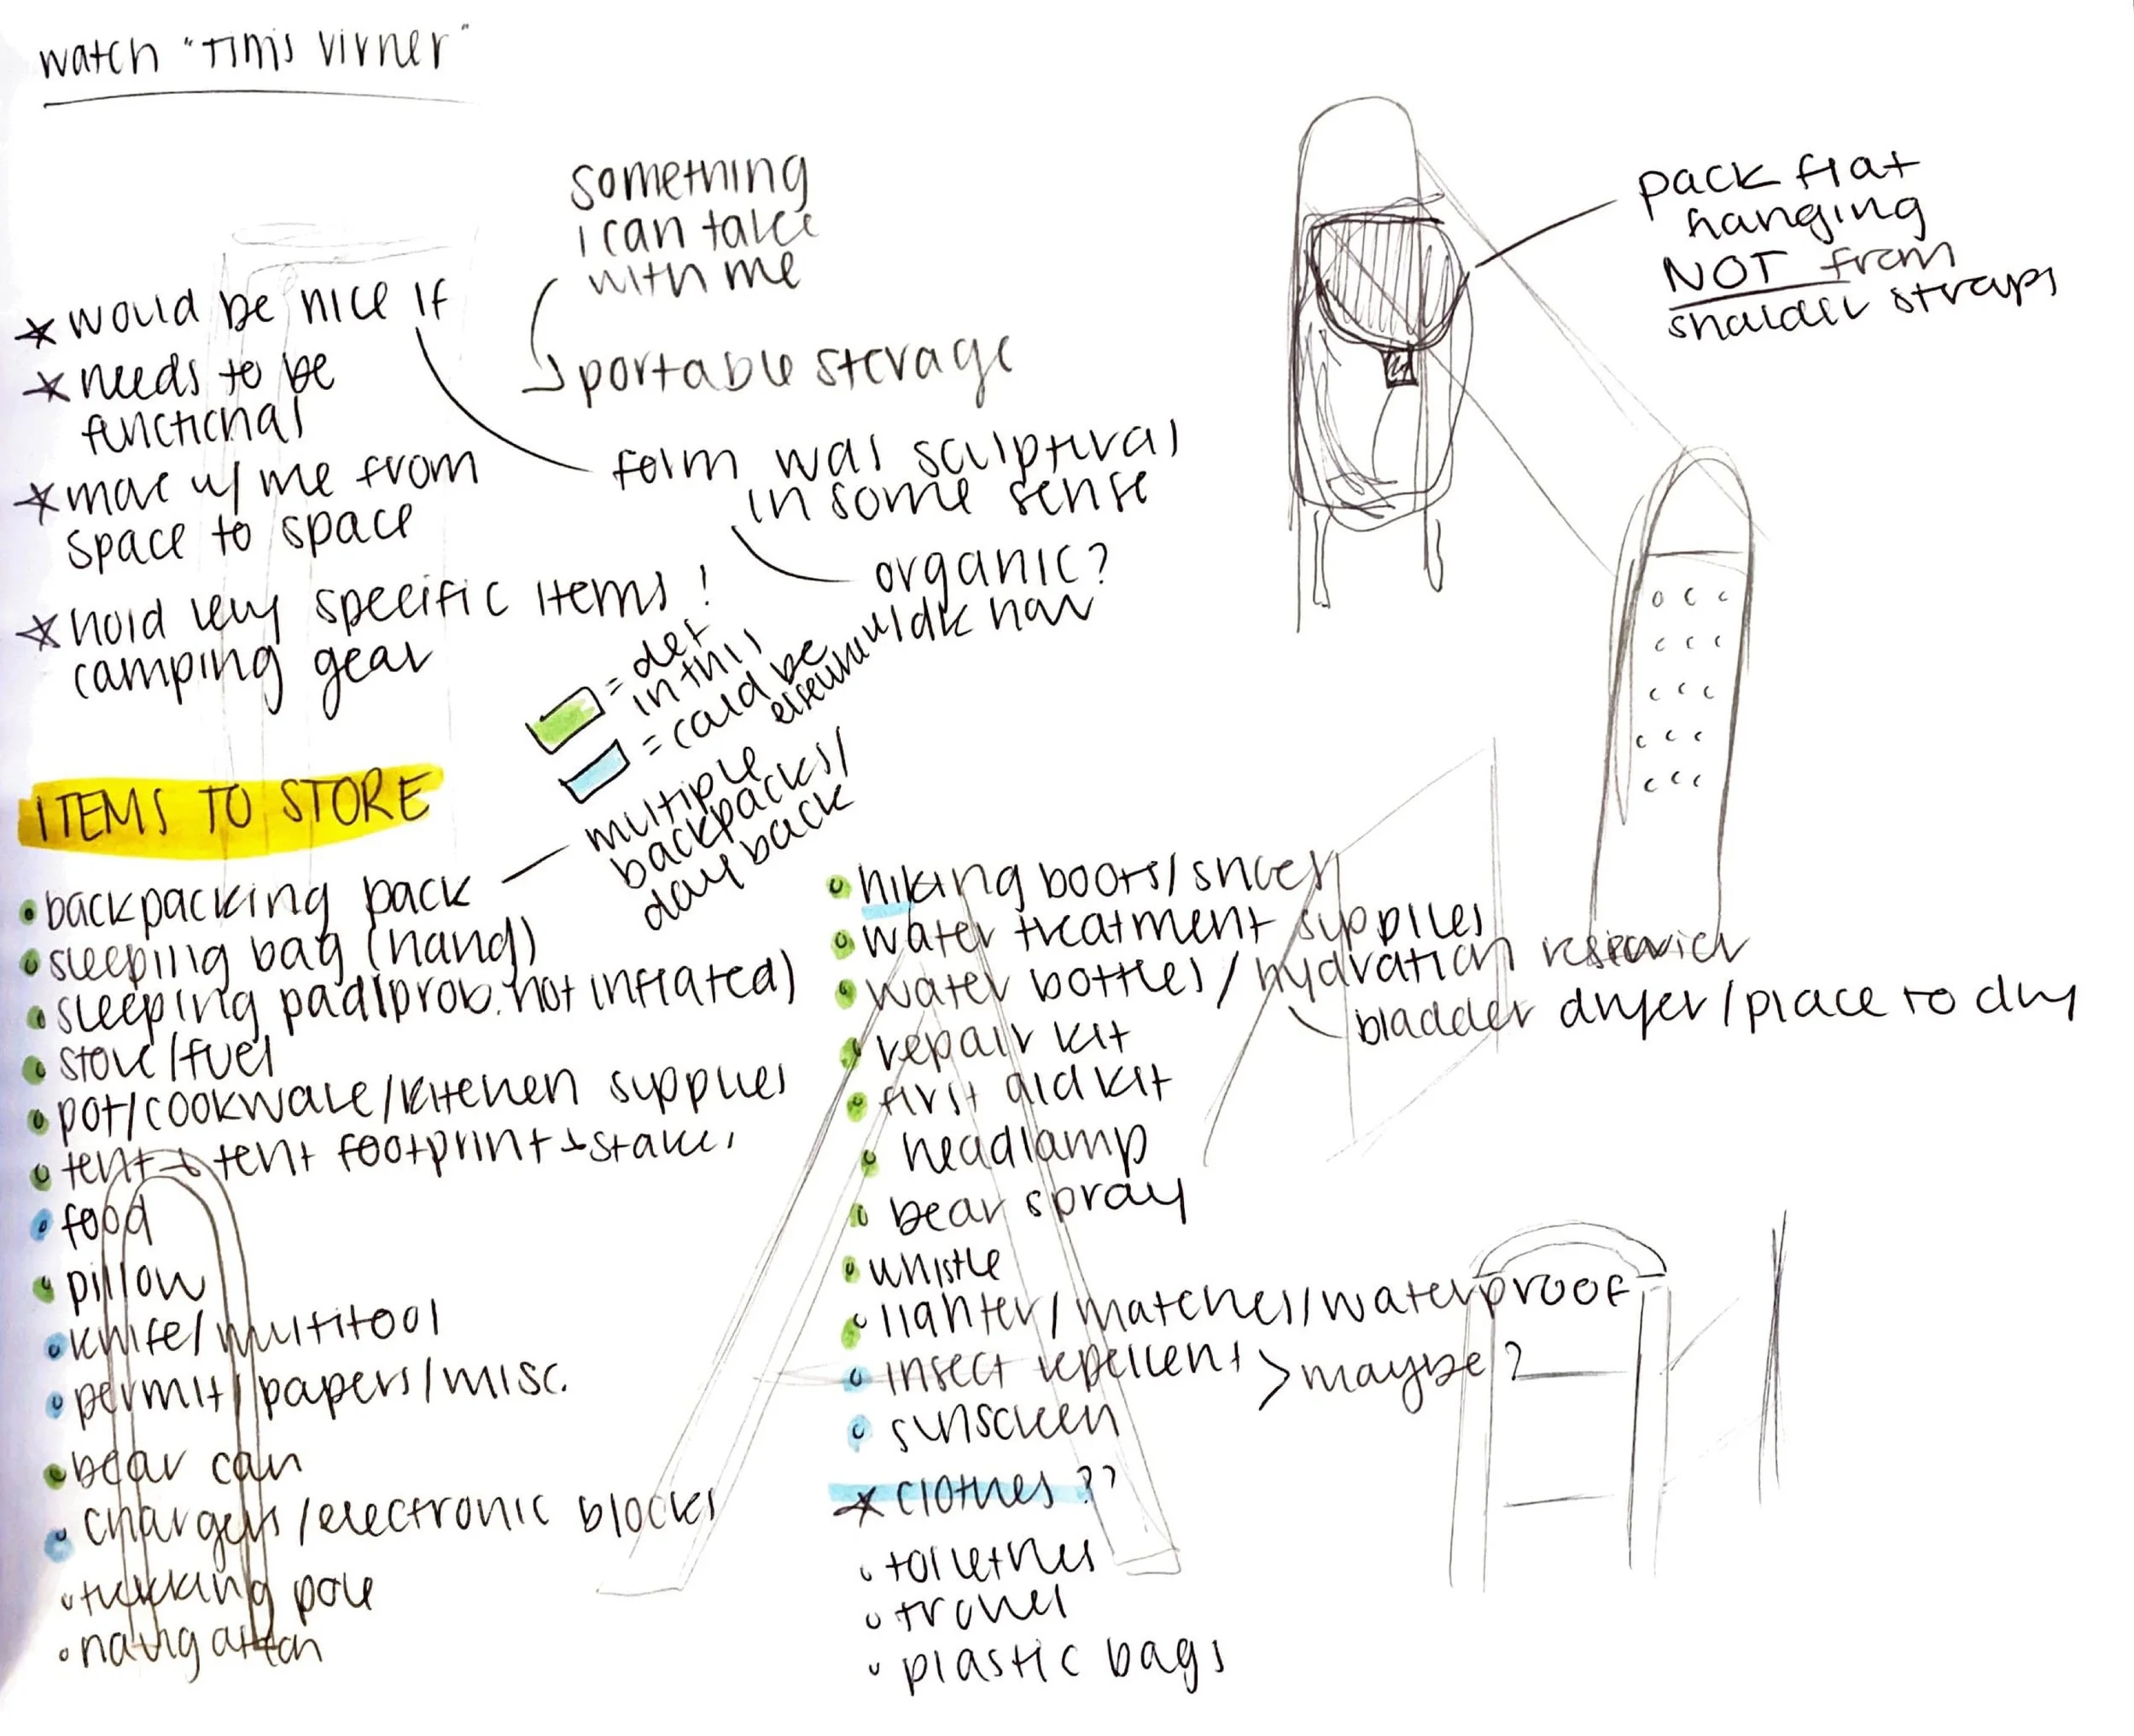 watch "Tim's Virner"
something
i can take
with me
portable storage
* would be nice if
* needs to be
functional
* move w/ me from
space to space
* hold very specific items!
camping gear
form was sculptural
in some sense
organic?
idk how
pack flat
hanging
NOT from
shoulder straps
= def
in this
= could be
elsewhere
ITEMS TO STORE
multiple
backpacks/
day back
• backpacking pack
• sleeping bag (hang)
• sleeping pad (prob. not inflated)
• stove/fuel
• pot/cookware/kitchen supplies
• tent + tent footprint + stakes
• food
• pillow
• knife/multitool
• permit/papers/misc.
• bear can
• chargers/electronic blocks
• trekking pole
• navigation
• hiking boots/shoes
• water treatment supplies
• water bottles/hydration
bladder dryer/place to dry
• repair kit
• first aid kit
• headlamp
• bear spray
• whistle
• lighter/matches/waterproof
• insect repellent > maybe?
• sunscreen
* clothes ??
• toiletries
• trowel
• plastic bags